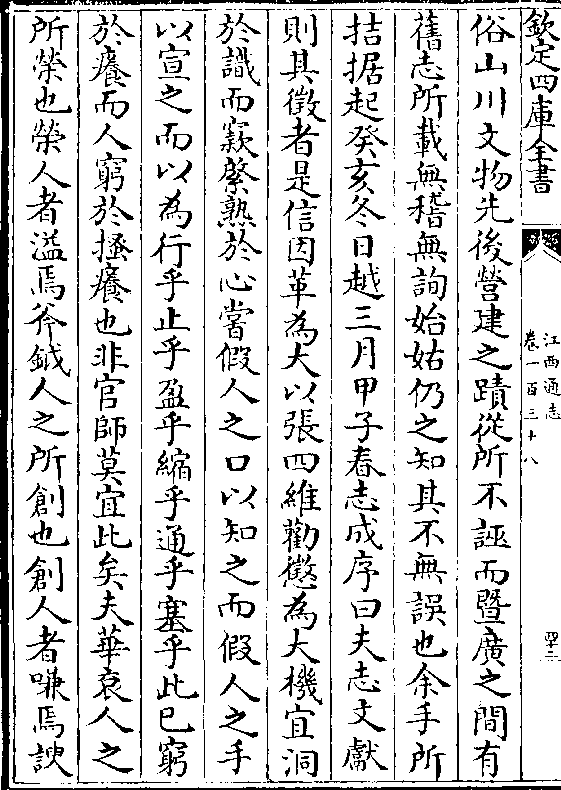 欽定四庫全書
江西通志
卷一百三十八
四十三
俗山川文物先後營建之蹟從所不誣而暨廣之間有
舊志所載無稽無詢始姑仍之知其不無誤也余手所
拮据起癸亥冬日越三月甲子春志成序曰夫志文獻
則其徵者是信因革為大以張四維勸懲為大機宜洞
於識而窽綮熟於心嘗假人之口以知之而假人之手
以宣之而以為行乎止乎盈乎縮乎通乎塞乎此已窮
於癢而人窮於搔癢也非官師莫宜此矣夫華衮人之
所榮也榮人者溢焉斧鉞人之所創也創人者嗛焉諛